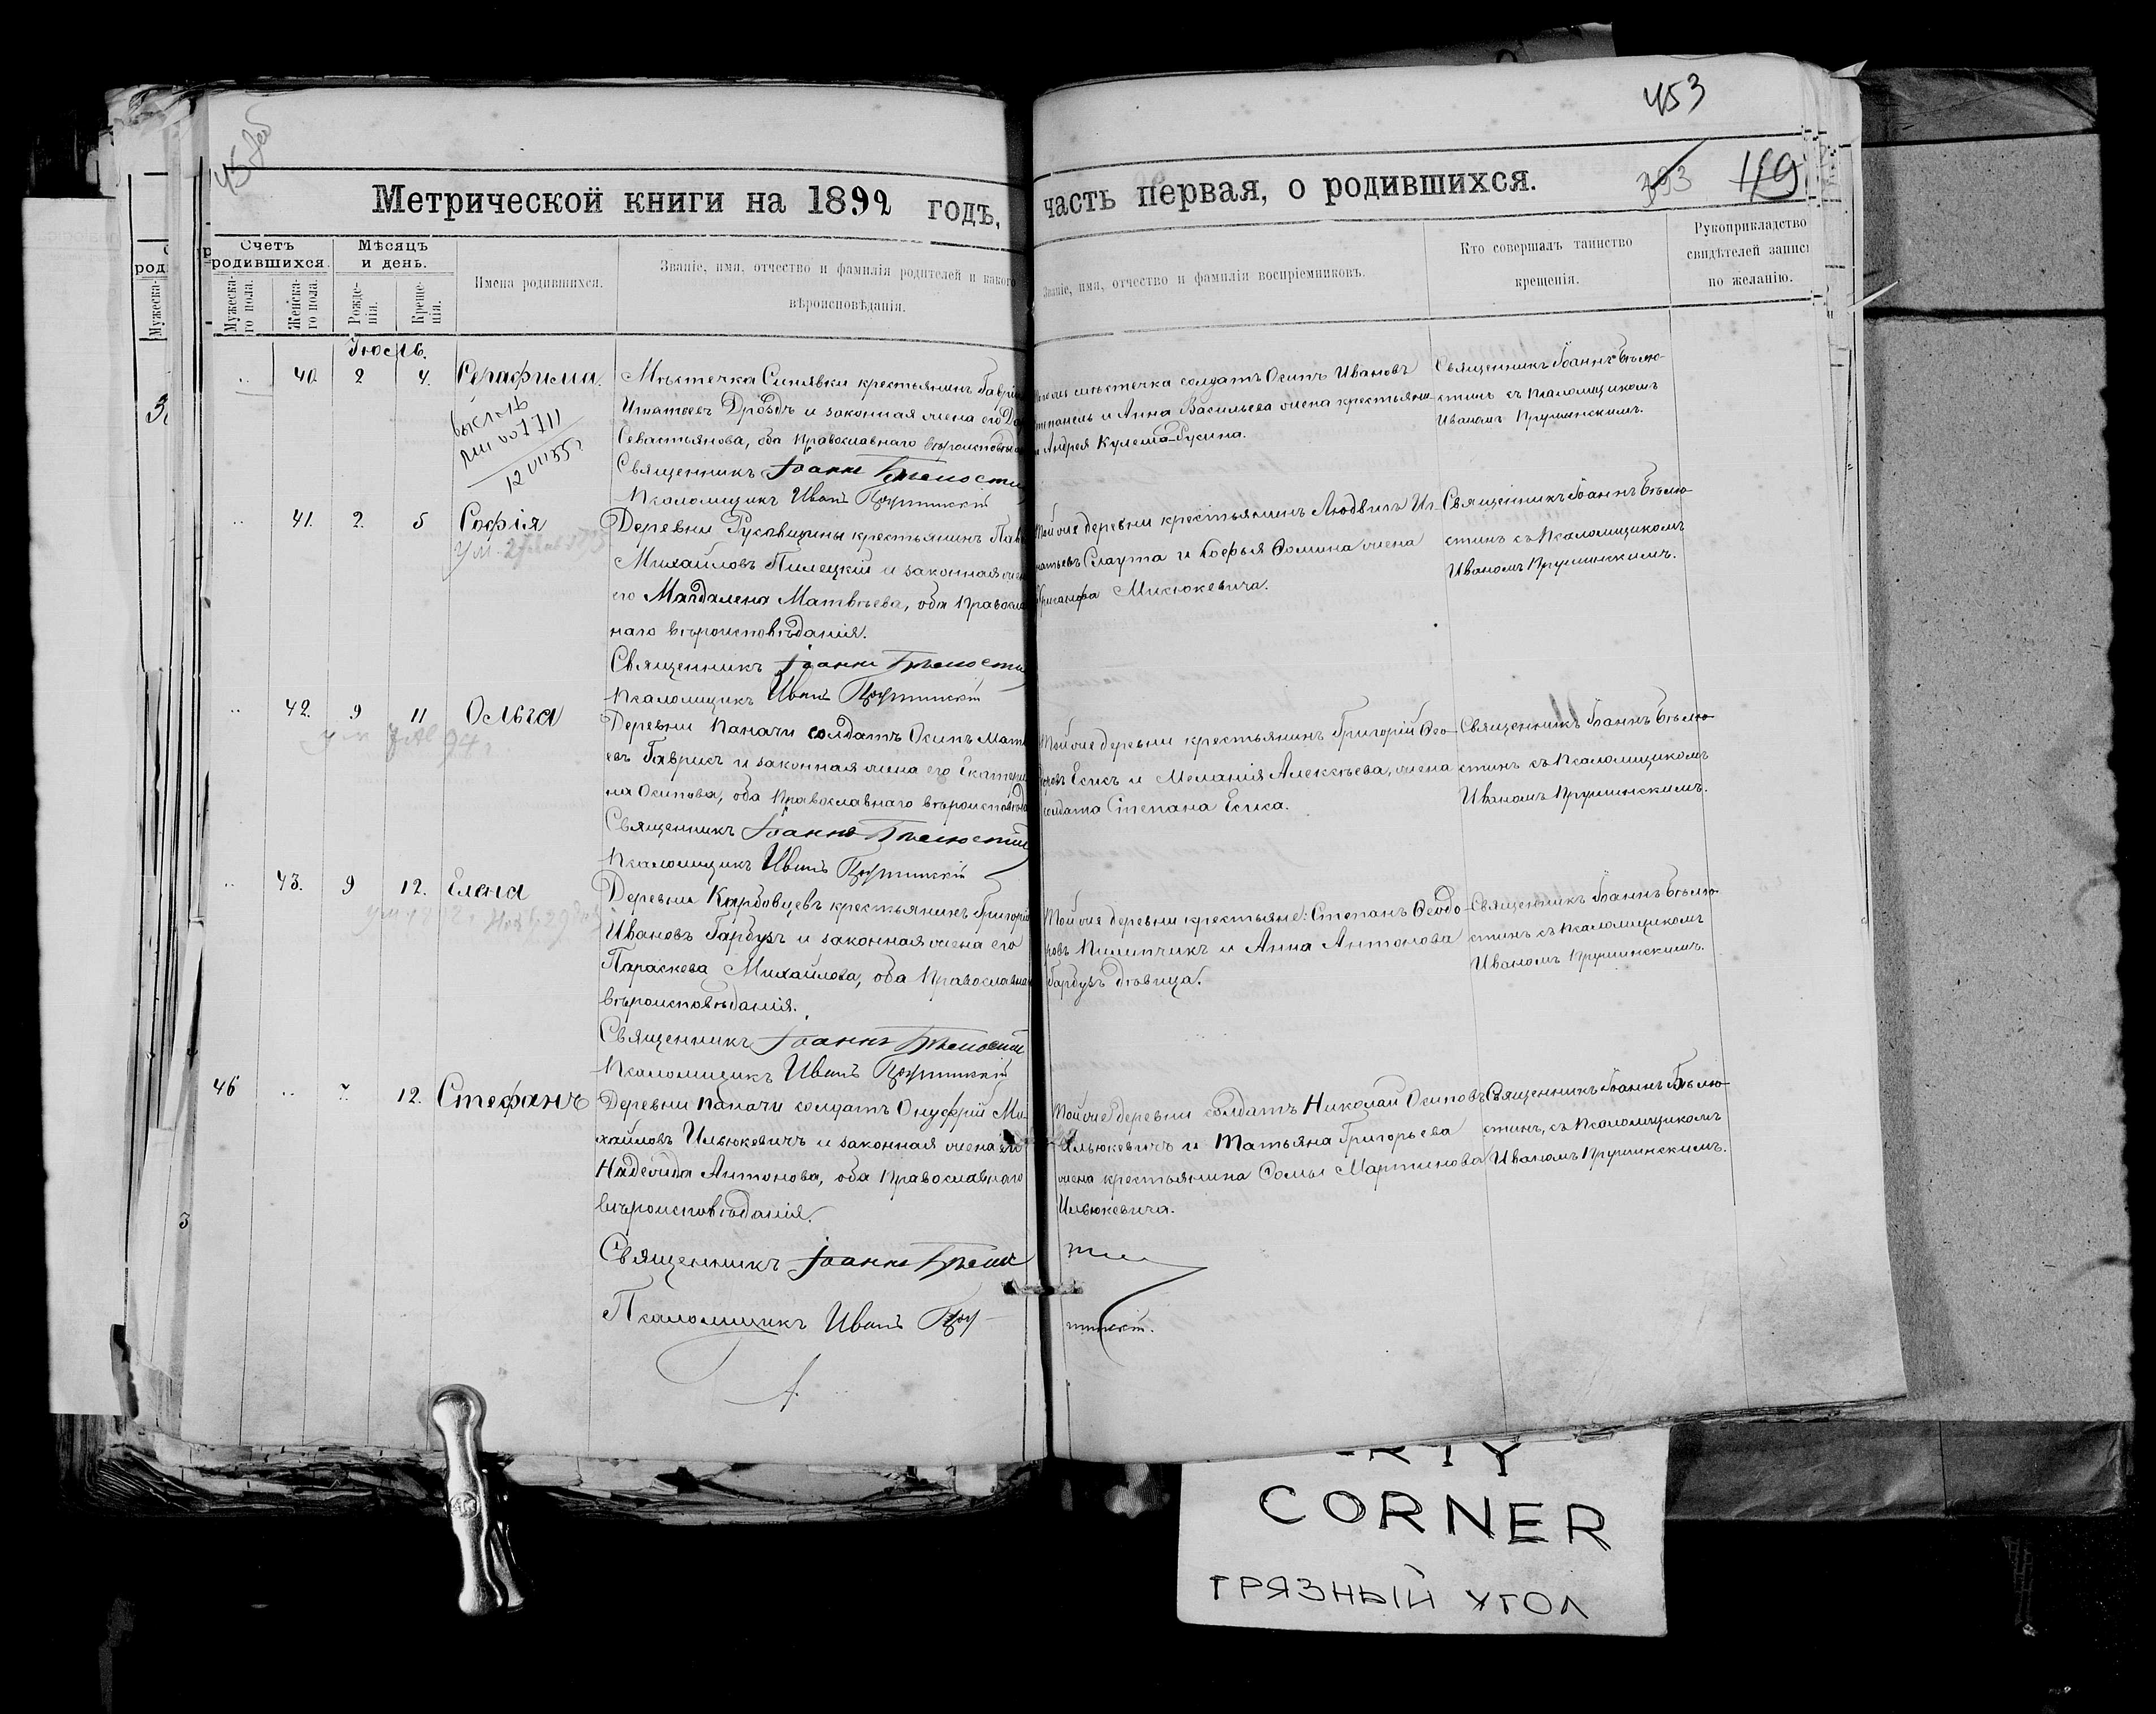 453
Метрической книги на 1892 годъ,
часть первая, о родившихся.
393
119
Счетъ родившихся.
Мѣсяцъ и день.
Имена родившихся.
Званіе, имя, отчество и фамилія родителей и какого
вѣроисповѣданія.
Мужеска-го пола.
Женска-го пола.
Рожде-нія.
Креще-нія.
Званіе, имя, отчество и фамилія воспріемниковъ.
Кто совершалъ таинство
крещенія.
Рукоприкладство
свидѣтелей записи
по желанію.
Іюль.
40. 2 4. Серафима.
Мѣстечка Синявки крестьянинъ Гаврі
Игнатьевъ Дроздъ и законная жена его
Севастьянова, оба Православнаго
Священникъ Іоаннъ
Псаломщикъ Иванъ
мѣстечка солдатъ Осипъ Ивановъ
и Анна Васильева жена крестьяни-
Андрея Кулеша-Русина.
Священникъ Іоаннъ Бѣлю-
стинъ съ Псаломщикомъ
Иваномъ Прушинскимъ.
41. 2. 5 Софія
Деревни Русавщины крестьянинъ
Михайловъ Пилецкій и законная
его Магдалена Матвѣева, оба Правосла
наго вѣроисповѣданія.
Священникъ Іоаннъ
Псаломщикъ Иванъ
Той же деревни крестьянинъ Людвигъ Иг-
натьевъ Слаута и Софья Ѳомина жена
Мисюкевича.
Священникъ Іоаннъ Бѣлю-
стинъ съ Псаломщикомъ
Иваномъ Прушинскимъ.
42. 9 11 Ольга
Деревни Паначи солдатъ Осипъ Матв
евъ Гаврикъ и законная жена его Екатери
на Осипова, оба Православнаго
Священникъ Іоаннъ
Псаломщикъ Иванъ
Той же деревни крестьянинъ Григорій Ѳео-
Есикъ и Меланія Алексѣева, жена
солдата Степана Есика.
Священникъ Іоаннъ Бѣлю-
стинъ съ Псаломщикомъ
Иваномъ Прушинскимъ.
43. 9 12. Елена
Деревни крестьянинъ Григорій
Ивановъ Гарбузъ и законная жена его
Параскева Михайлова, оба Православна
вѣроисповѣданія.
Священникъ Іоаннъ
Псаломщикъ Иванъ
Той же деревни крестьяне: Степанъ Ѳеодо-
ровъ Пилипчикъ и Анна Антонова
Гарбузъ дѣвица.
Священникъ Іоаннъ Бѣлю-
стинъ съ Псаломщикомъ
Иваномъ Прушинскимъ.
46 12. Стефанъ
Деревни Паначи солдатъ Онуфрій Ми-
хайловъ Ильюкевичъ и законная жена его
Надежда Антонова, оба Православнаго
вѣроисповѣданія.
Священникъ Іоаннъ
Псаломщикъ Иванъ
Той же деревни солдатъ Николай Осиповъ
Ильюкевичъ и Татьяна Григорьева
жена крестьянина Сомы Мартинова
Ильюкевича.
Священникъ Іоаннъ Бѣлю-
стинъ, съ Псаломщикомъ
Иваномъ Прушинскимъ.
CORNER
ГРЯЗНЫЙ УГОЛ